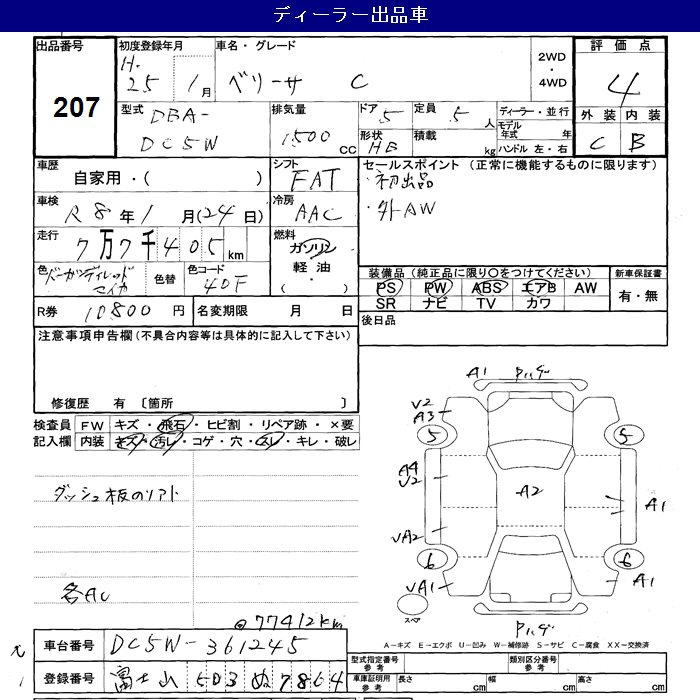 ディーラー出品車
出品番号 初度登録年月 車名・グレード 2WD ・ 4WD 評価点
207 H. 25年 1月 ベリーサ C 4
型式 DBA-DC5W 排気量 1500 CC ドア 5 定員 5人 ディーラー・並行 外装 内装
形状 HB 積載 kg モデル年式 年 ハンドル 左・右 C B
車歴 自家用・( ) シフト FAT セールスポイント (正常に機能するものに限ります)
・初出品
車検 R8年1月(24日) 冷房 AAC ・外AW
走行 7万7千405km 燃料 ガソリン 軽油 ( ・ )
色 色替 色コード 40F 装備品 (純正品に限り○をつけてください) 新車保証書
PS PW ABS エアB AW 有・無
SR ナビ TV カワ
R券 10800円 名変期限 月 日 後日品
注意事項申告欄 (不具合内容等は具体的に記入して下さい)
修復歴 有 〔箇所 〕
検査員記入欄 FW キズ・飛石・ヒビ割・リペア跡・×要
内装 キズ・汚レ・コゲ・穴・スレ・キレ・破レ
A1 ハゲ
V2
A3
5 5
ダッシュ板のソフト
A4
V2 A2 A1
VA2
6 6
各AU VA1 A1
スペア
@77412km ハゲ
A-キズ E-エクボ U-凹み W-補修跡 S-サビ C-腐食 XX-交換済
車台番号 DC5W-361245 型式指定番号 参考 類別区分番号 参考
登録番号 富士山 503 ぬ 7864 車庫証明用 参考 長さ cm 幅 cm 高さ cm